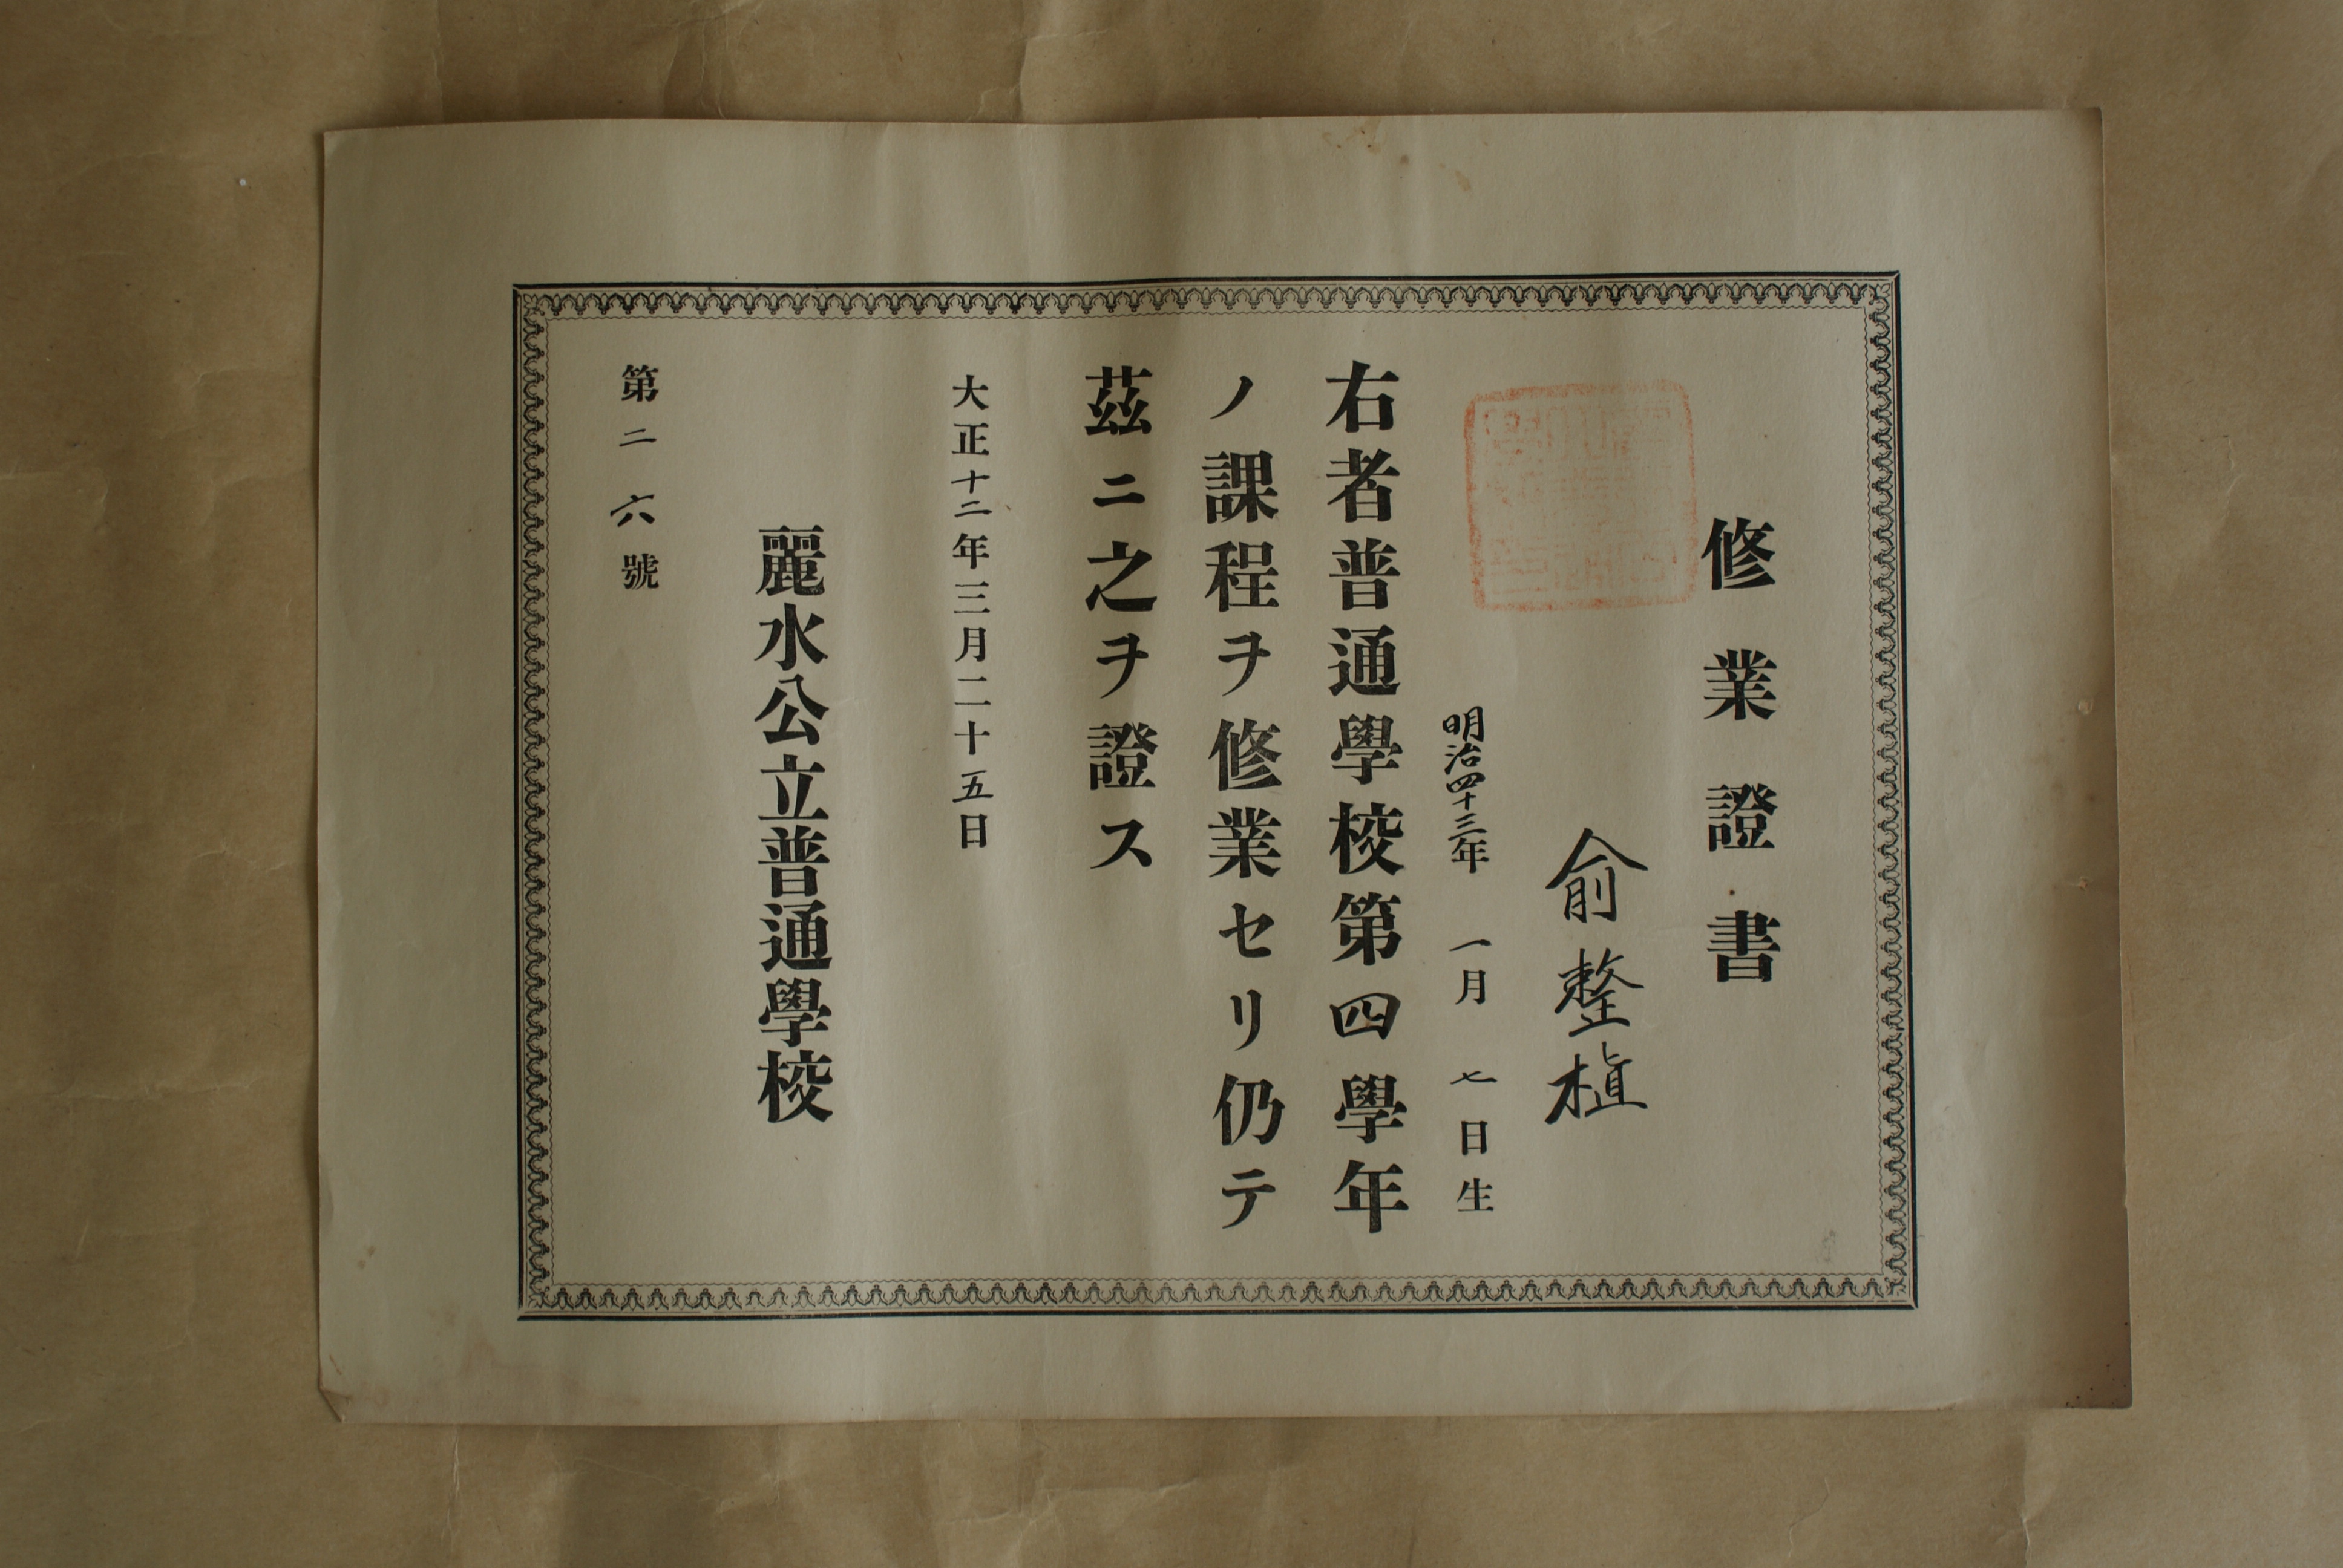 修業證書
俞整植
明治四十三年一月七日生
右者普通學校第四學年
ノ課程ヲ修業セリ仍テ
茲ニ之ヲ證ス
大正十二年三月二十五日
麗水公立普通學校
第二六號